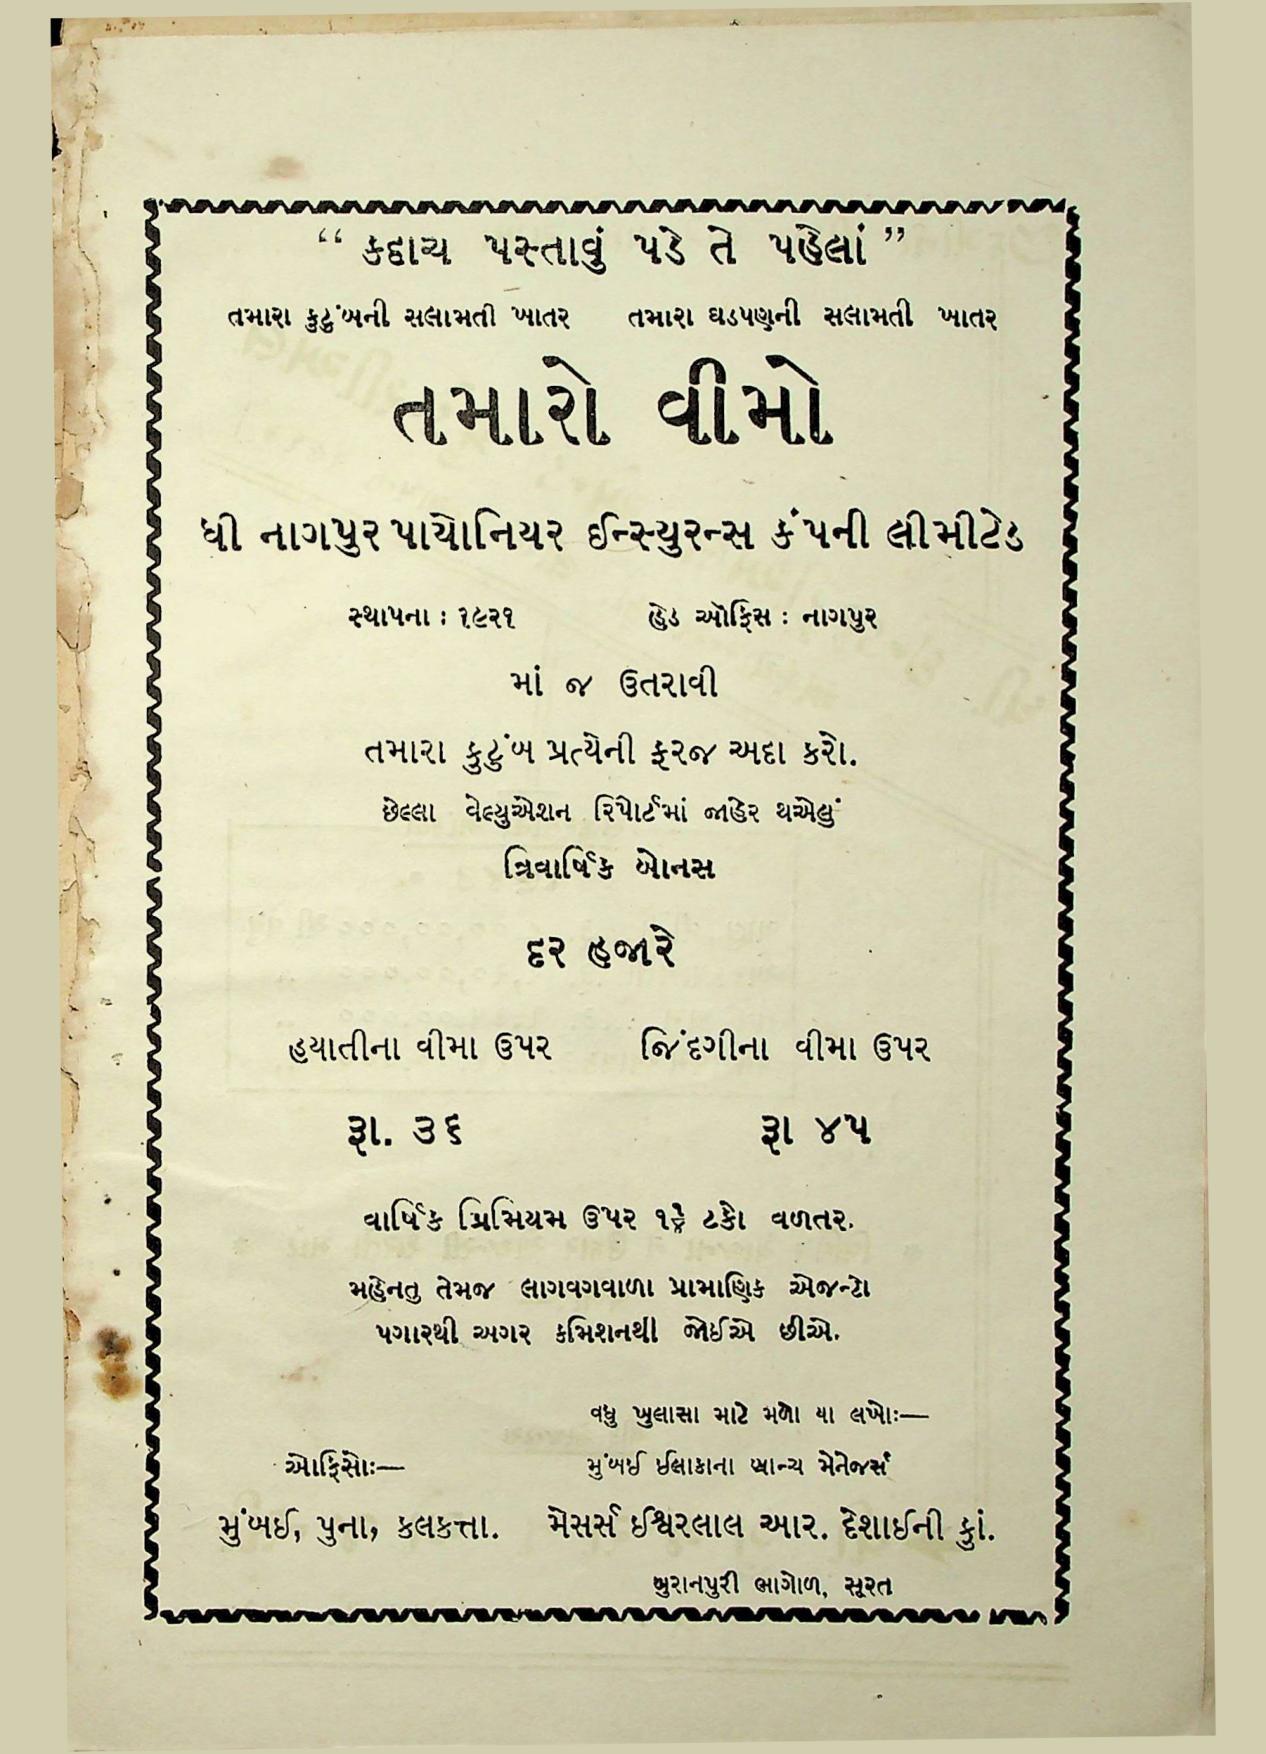 “ કદાચ પસ્તાવું પડે તે પહેલાં ”
તમારા કુટુંબની સલામતી ખાતર તમારા ઘડપણની સલામતી ખાતર
તમારો વીમો
ધી નાગપુર પાયોનિયર ઈન્સ્યુરન્સ કંપની લીમીટેડ
સ્થાપના : ૧૯૨૧ હેડ ઑફિસ : નાગપુર
માં જ ઉતરાવી
તમારા કુટુંબ પ્રત્યેની ફરજ અદા કરો.
છેલ્લા વેલ્યુએશન રિપોર્ટમાં જાહેર થએલું
ત્રિવાર્ષિક બોનસ
દર હજારે
હયાતીના વીમા ઉપર જિંદગીના વીમા ઉપર
રૂા. ૩૬ રૂા ૪૫
વાર્ષિક પ્રિમિયમ ઉપર ટકો વળતર.
મહેનતુ તેમજ લાગવગવાળા પ્રામાણિક એજન્ટો
પગારથી અગર કમિશનથી જોઈએ છીએ.
વધુ ખુલાસા માટે મળો યા લખોઃ—
ઓફિસોઃ— મુંબઈ ઈલાકાના બ્રાન્ચ મેનેજર્સ
મુંબઈ, પુના, કલકત્તા. મેસર્સ ઈશ્વરલાલ આર. દેશાઈની કુાં.
બુરાનપુરી ભાગોળ, સૂરત